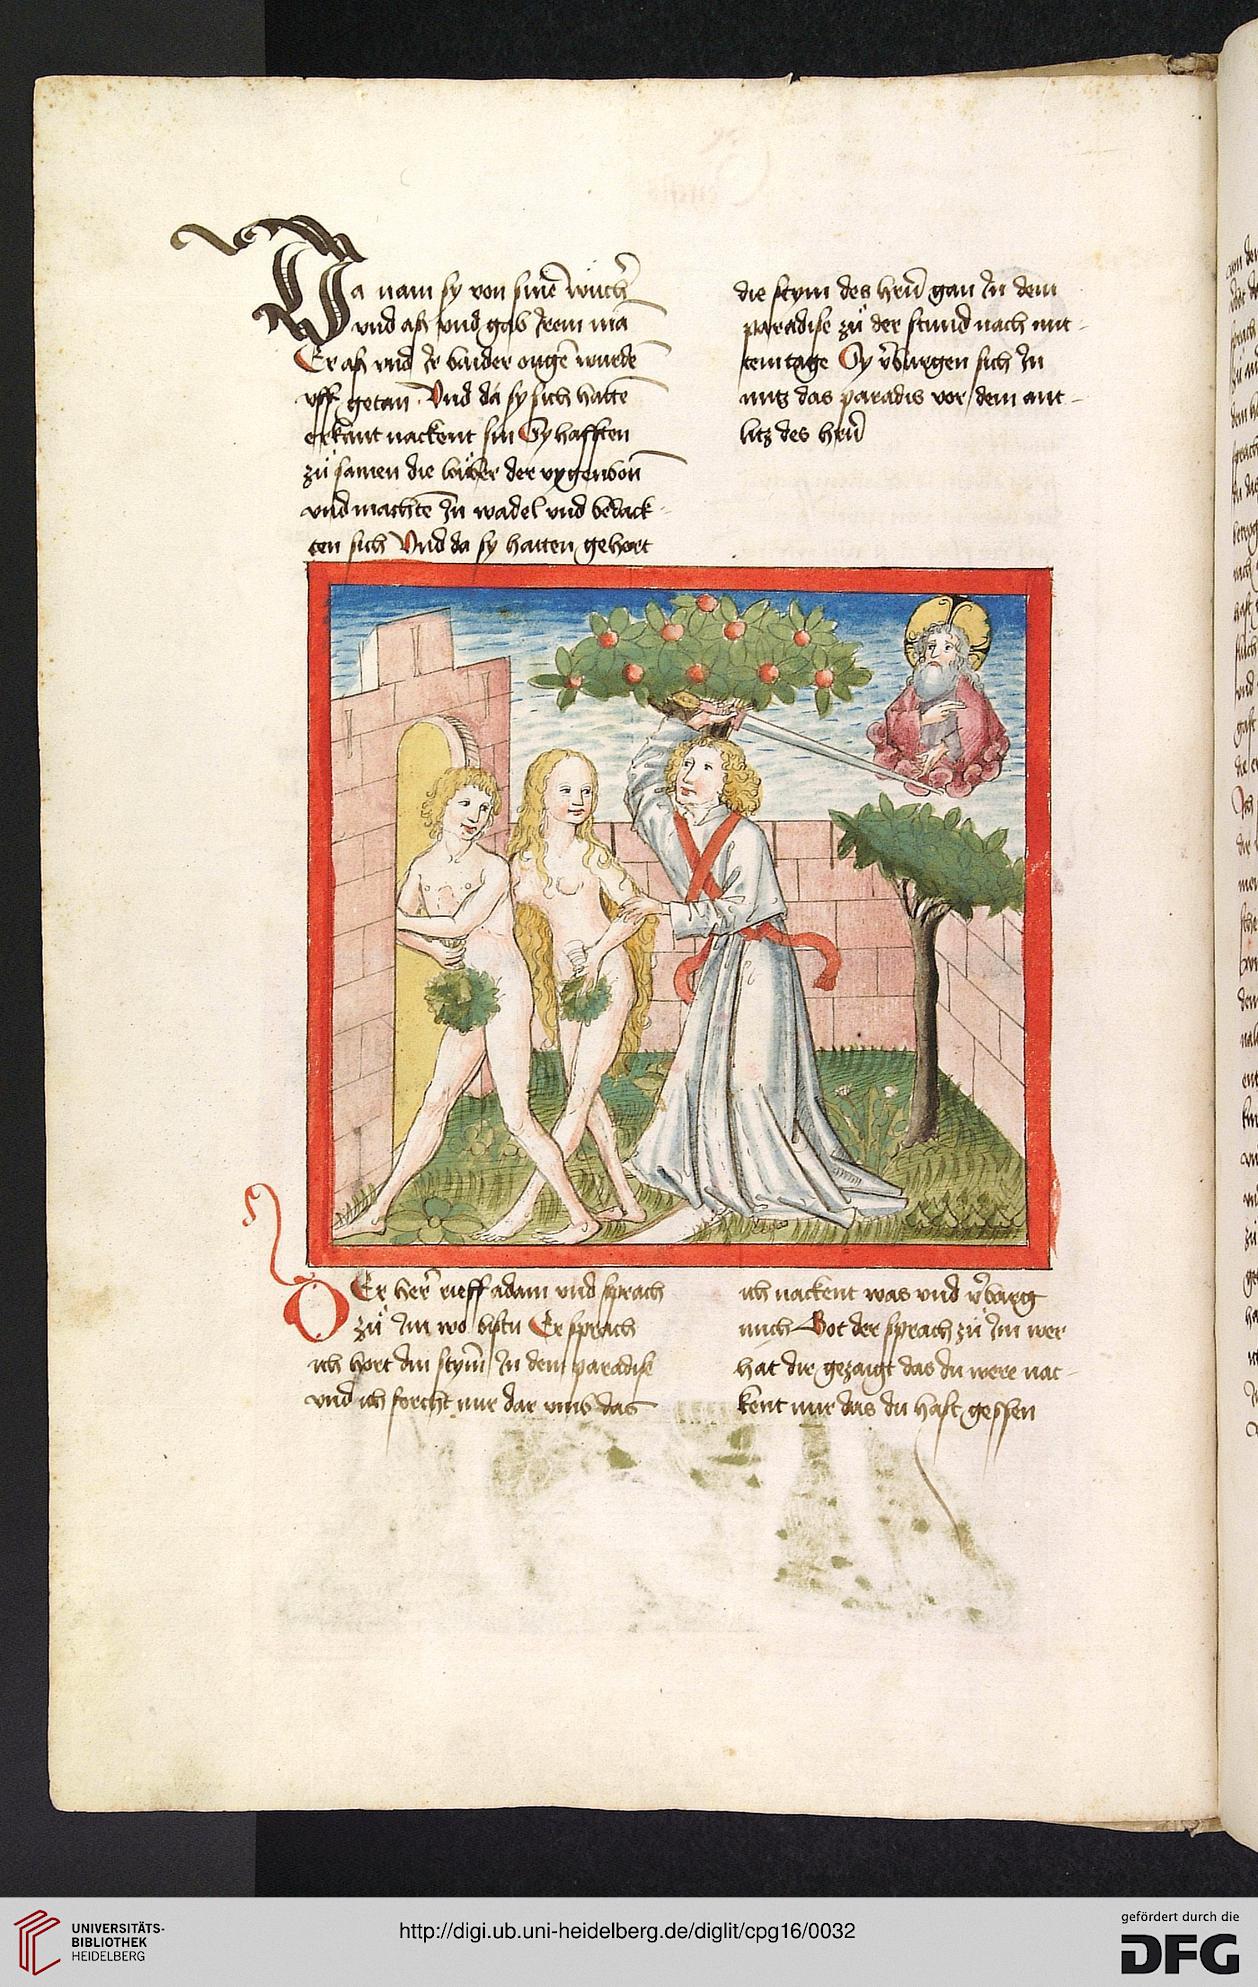 Da nam sy von sinē wucħ
vnd aß vnd gab Irem mā
Er aß vnd Ir baider ougē wurdē
vff getan Vnd da sy sich hattē
erkant nackent sin Sy hafften
zů samen die
vnd machtē In wadel vnd bedack-
ten sich Vnd da sy hatten gehort
die stym des hern̄ gan In dem
paradise zů der stund nach mit-
tem tage Sy v̄burgen sich In
mitz das paradis vor dem ant-
litz des hern̄
DEr her̄ rieff adam vnd sprach
zů Im wo bistu Er sprach
ich hort din stym̄ In dem paradise
vnd ich forcht mir dar vmb das
ich nackent was vnd v̄barg
mich Got der sprach zů Im wer
hat dir gezaigt das du were nac-
kent nur das du hast gessen
UNIVERSITÄTS-
BIBLIOTHEK
HEIDELBERG
http://digi.ub.uni-heidelberg.de/diglit/cpg16/0032
gefördert durch die
DFG